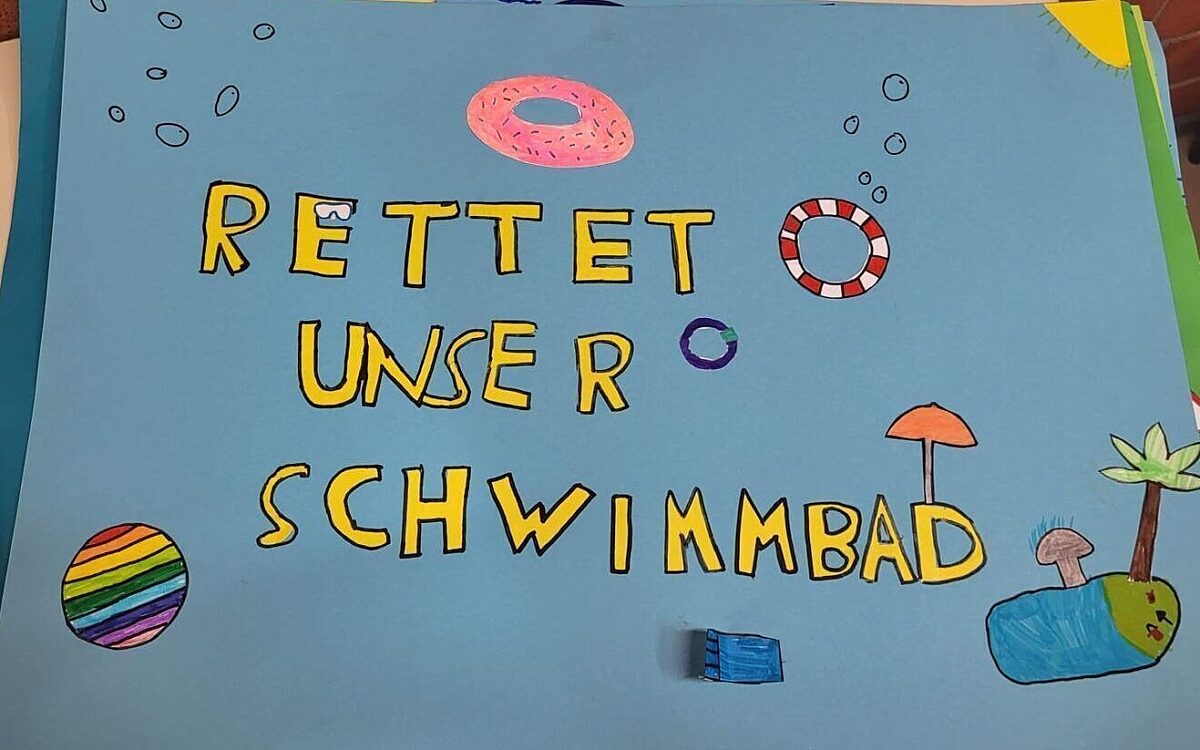 RETTET
UNSER
SCHWIMMBAD